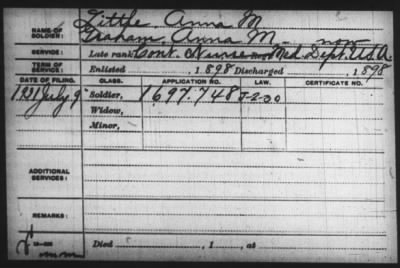 Little, Anna M
NAME OF SOLDIER: Graham, Anna M now
SERVICE: Late rank, Cont. Nurse Med. Dept. U.S.A.
TERM OF SERVICE: Enlisted 1898 Discharged , 1898
DATE OF FILING. CLASS. APPLICATION NO. LAW. CERTIFICATE NO.
1931 July 9 Soldier, 1697.748 J-2-30
Widow,
Minor,
ADDITIONAL SERVICES:
REMARKS:
Died , 1 , at